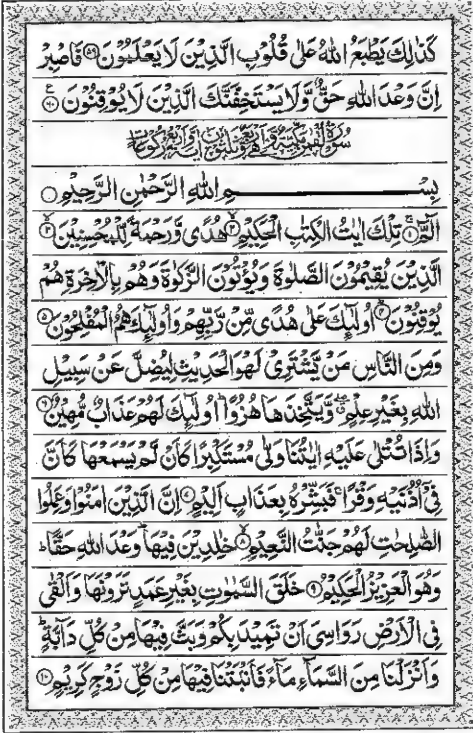 كَذٰلِكَ يَطْبَعُ اللّٰهُ عَلٰى قُلُوْبِ الَّذِيْنَ لَا يَعْلَمُوْنَ ۝۵۹ فَاصْبِرْ
اِنَّ وَعْدَ اللّٰهِ حَقٌّ وَّلَا يَسْتَخِفَّنَّكَ الَّذِيْنَ لَا يُوْقِنُوْنَ ۝۶۰
بِسْمِ اللّٰهِ الرَّحْمٰنِ الرَّحِيْمِ ۝
الٓمّٓ ۝۱ تِلْكَ اٰيٰتُ الْكِتٰبِ الْحَكِيْمِ ۝۲ هُدًى وَّرَحْمَةً لِّلْمُحْسِنِيْنَ ۝۳
الَّذِيْنَ يُقِيْمُوْنَ الصَّلٰوةَ وَيُؤْتُوْنَ الزَّكٰوةَ وَهُمْ بِالْاٰخِرَةِ هُمْ
يُوْقِنُوْنَ ۝۴ اُولٰٓئِكَ عَلٰى هُدًى مِّنْ رَّبِّهِمْ وَاُولٰٓئِكَ هُمُ الْمُفْلِحُوْنَ ۝۵
وَمِنَ النَّاسِ مَنْ يَّشْتَرِيْ لَهْوَ الْحَدِيْثِ لِيُضِلَّ عَنْ سَبِيْلِ
اللّٰهِ بِغَيْرِ عِلْمٍ وَّيَتَّخِذَهَا هُزُوًا اُولٰٓئِكَ لَهُمْ عَذَابٌ مُّهِيْنٌ ۝۶
وَاِذَا تُتْلٰى عَلَيْهِ اٰيٰتُنَا وَلّٰى مُسْتَكْبِرًا كَاَنْ لَّمْ يَسْمَعْهَا كَاَنَّ
فِيْٓ اُذُنَيْهِ وَقْرًا فَبَشِّرْهُ بِعَذَابٍ اَلِيْمٍ ۝۷ اِنَّ الَّذِيْنَ اٰمَنُوْا وَعَمِلُوا
الصّٰلِحٰتِ لَهُمْ جَنّٰتُ النَّعِيْمِ ۝۸ خٰلِدِيْنَ فِيْهَا وَعْدَ اللّٰهِ حَقًّا ط
وَهُوَ الْعَزِيْزُ الْحَكِيْمُ ۝۹ خَلَقَ السَّمٰوٰتِ بِغَيْرِ عَمَدٍ تَرَوْنَهَا وَاَلْقٰى
فِي الْاَرْضِ رَوَاسِيَ اَنْ تَمِيْدَ بِكُمْ وَبَثَّ فِيْهَا مِنْ كُلِّ دَآبَّةٍ ط
وَاَنْزَلْنَا مِنَ السَّمَآءِ مَآءً فَاَنْۢبَتْنَا فِيْهَا مِنْ كُلِّ زَوْجٍ كَرِيْمٍ ۝۱۰